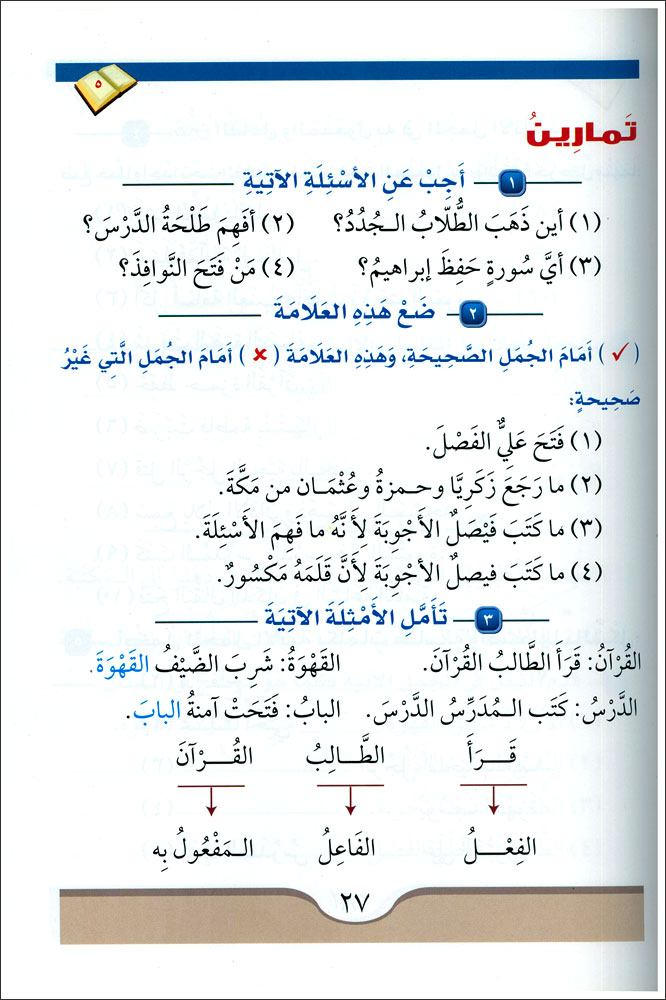 ٥
تَمارِينُ
١ أَجِبْ عَنِ الأَسْئِلَةِ الآتِيَةِ
(١) أين ذَهَبَ الطُّلّابُ الـجُدُدُ؟ (٢) أفَهِمَ طَلْحَةُ الدَّرْسَ؟
(٣) أيَّ سُورةٍ حَفِظَ إبراهيمُ؟ (٤) مَنْ فَتَحَ النَّوافِذَ؟
٢ ضَعْ هَذِهِ العَلَامَةَ
(✓) أَمَامَ الجُمَلِ الصَّحِيحَةِ، وَهَذِهِ العَلَامَةَ (✗) أَمَامَ الجُمَلِ الَّتِي غَيْرُ
صَحِيحَةٍ:
(١) فَتَحَ عَلِيٌّ الفَصْلَ.
(٢) ما رَجَعَ زَكَرِيَّا وحـمزةُ وعُثْمَـان من مَكَّةَ.
(٣) ما كَتَبَ فَيْصَلٌ الأَجْوِبَةَ لأَنَّهُ ما فَهِمَ الأَسْئلَةَ.
(٤) ما كَتَبَ فيصلٌ الأَجْوِبَةَ لِأَنَّ قَلَمَهُ مَكْسُورٌ.
٣ تَأَمَّلِ الأَمْثِلَةَ الآتِيَةَ
القُرْآنُ: قَرَأَ الطَّالبُ القُرْآنَ. القَهْوَةُ: شَرِبَ الضَّيْفُ القَهْوَةَ.
الدَّرْسُ: كَتَب الـمُدَرِّسُ الدَّرْسَ. البابُ: فَتَحَتْ آمنةُ البابَ.
قَـــرَأَ الطَّـــالِبُ القُـــرْآنَ
الفِعْـــلُ الفَاعِلُ الـمَفْعُولُ بِه
٢٧